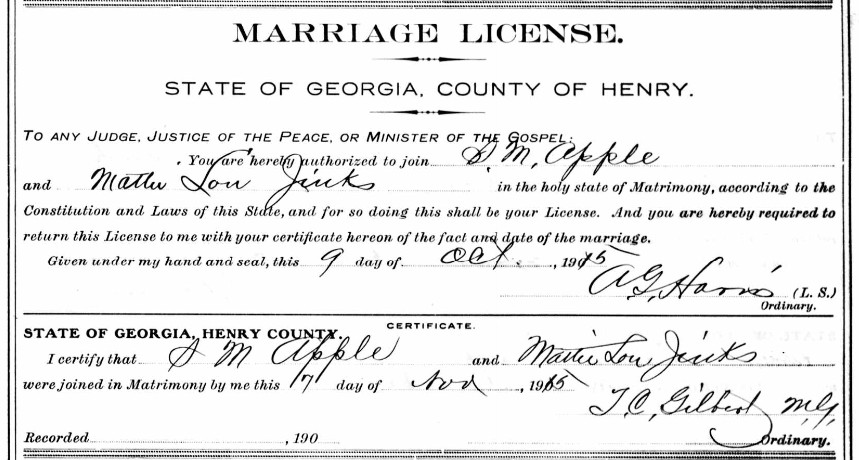 MARRIAGE LICENSE.
STATE OF GEORGIA, COUNTY OF HENRY.
TO ANY JUDGE, JUSTICE OF THE PEACE, OR MINISTER OF THE GOSPEL:
You are hereby authorized to join S M, Apple
and Mattie Lou Jinks in the holy state of Matrimony, according to the
Constitution and Laws of this State, and for so doing this shall be your License. And you are hereby required to
return this License to me with your certificate hereon of the fact and date of the marriage.
Given under my hand and seal, this 9 day of Oct. , 1915
A G, Harris (L. S.)
Ordinary.
CERTIFICATE.
STATE OF GEORGIA, HENRY COUNTY.
I certify that S M Apple and Mattie Lou Jinks
were joined in Matrimony by me this 17 day of Nov , 1915
T, C, Gilbert M.G.
Recorded , 190 Ordinary.